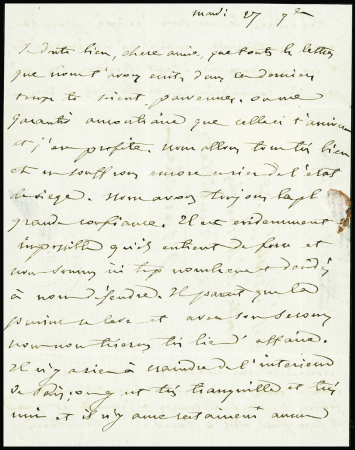 mardi 27 7bre
Je doute bien, chere amie, que toutes les lettres
que nous t'avons ecrit, dans ces derniers
temps te soient parvenues. on me
garantit que celle ci t'arrivera
et j'en profite. Nous allons tous très bien
et ne souffrons encore en rien de l'état
de siège. Nous avons toujours la plus
grande confiance. Il est evidemment
impossible qu'ils entrent de force et
nous sommes ici trop nombreux et decidés
à nous défendre. Il parait que la
province se leve et avec son secours
nous nous tirerons très bien d'affaire.
Il n'y a rien à craindre de l'interieur
de Paris, on y est très tranquille et très
uni et il n'y aura certainement aucun